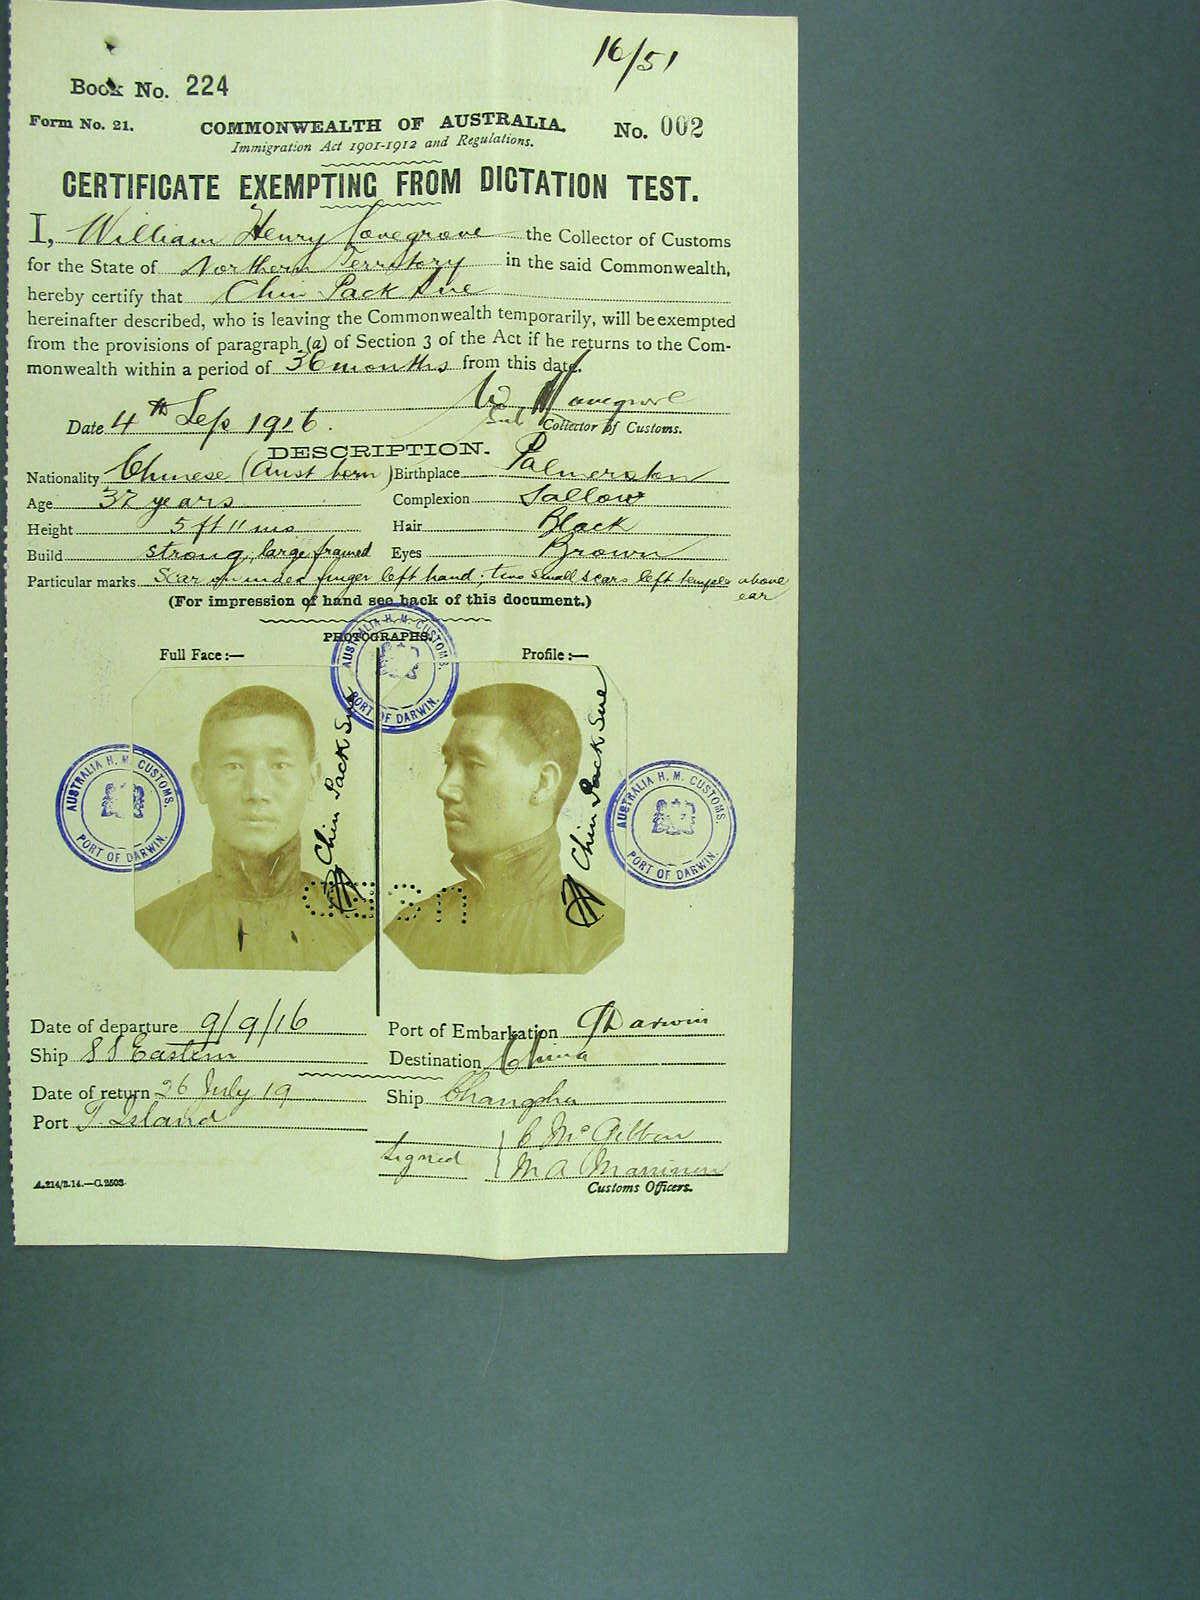 16/51
Book No. 224
Form No. 21. COMMONWEALTH OF AUSTRALIA. No. 002
Immigration Act 1901-1912 and Regulations.
CERTIFICATE EXEMPTING FROM DICTATION TEST.
I, William Henry the Collector of Customs
for the State of Northern Territory in the said Commonwealth,
hereby certify that Chin Pack Sue
hereinafter described, who is leaving the Commonwealth temporarily, will be exempted
from the provisions of paragraph (a) of Section 3 of the Act if he returns to the Com-
monwealth within a period of 36 months from this date.
Date 4th Sep 1916. Sub Collector of Customs.
DESCRIPTION.
Nationality Chinese (Aust born) Birthplace Palmerston
Age 37 years Complexion Sallow
Height 5 ft 11 ins Hair Black
Build strong, large framed Eyes Brown
Particular marks Scar on index finger left hand; two small scars left temple above
ear
(For impression of hand see back of this document.)
PHOTOGRAPHS.
Full Face:— Profile:—
AUSTRALIA H. M. CUSTOMS. PORT OF DARWIN.
Chin Pack Sue
Chin Pack Sue
AUSTRALIA H. M. CUSTOMS. PORT OF DARWIN.
AUSTRALIA H. M. CUSTOMS. PORT OF DARWIN.
Date of departure 9/9/16 Port of Embarkation Darwin
Ship SS Eastern Destination China
Date of return 26 July 19 Ship Changsha
Port T. Island
Signed
Customs Officers.
A.214/2.14.—C.2503.